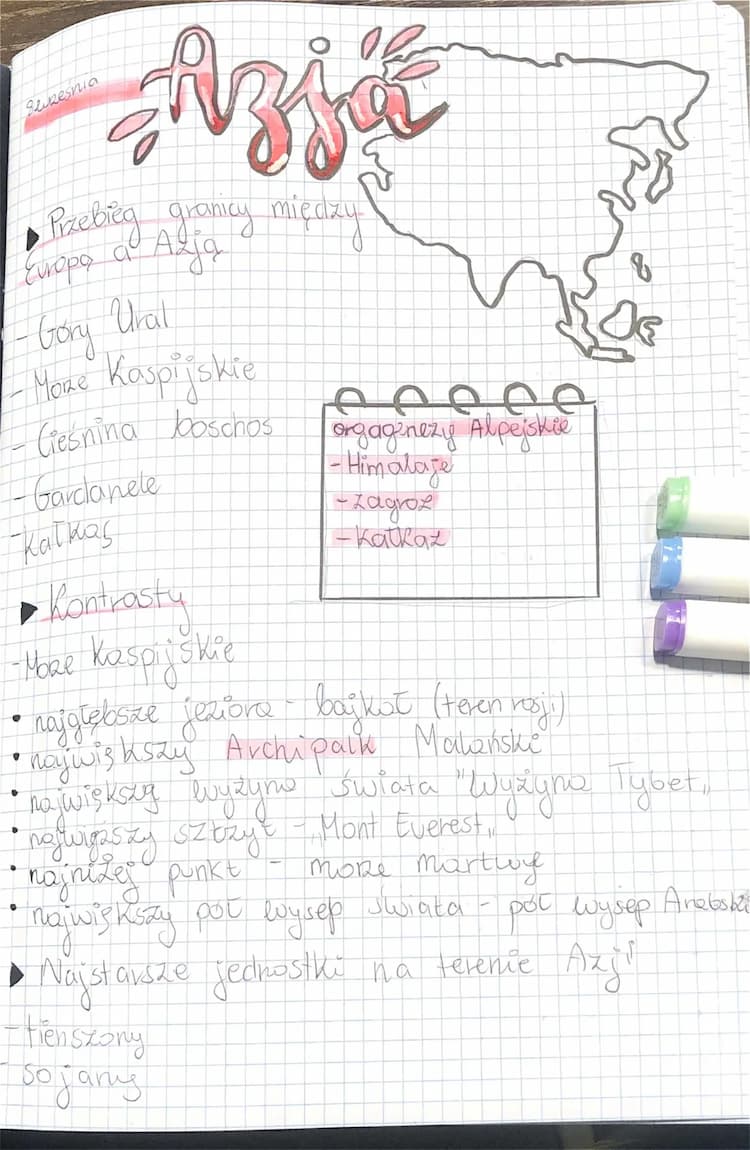 września
Azja
Przebieg granicy między
Europą a Azją
- Góry Ural
- Morze Kaspijskie
- Cieśnina boschos
- Gardanele
- Kałkas
orgagenezy Alpejskie
- Himalaje
- Zagroz
- Kałkaz
Kontrasty
- Morze Kaspijskie
• najgłębsze jezioro - bajkoł (teren rosji)
• największy Archipalk Malański
• największą wyżyna świata "Wyżyna Tybet„
• najwięaszy sztzyt - „Mont Everest„
• najniżej punkt - morze martwy
• największy pół wysep świata - pół wysep Arabski
Najstarsze jednostki na terenie Azji
- tienszony
- sojany